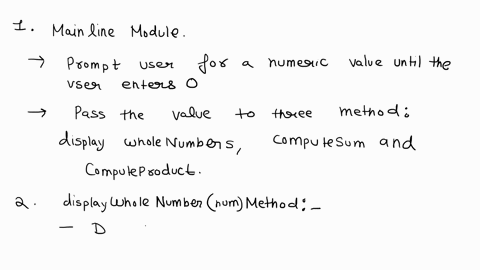 1. Mainline Module.
→ Prompt user for a numeric value until the
user enters 0
→ Pass the value to three method:
display wholeNumbers, computeSum and
ComputeProduct.
2. displayWhole Number (num) Method:-
- D